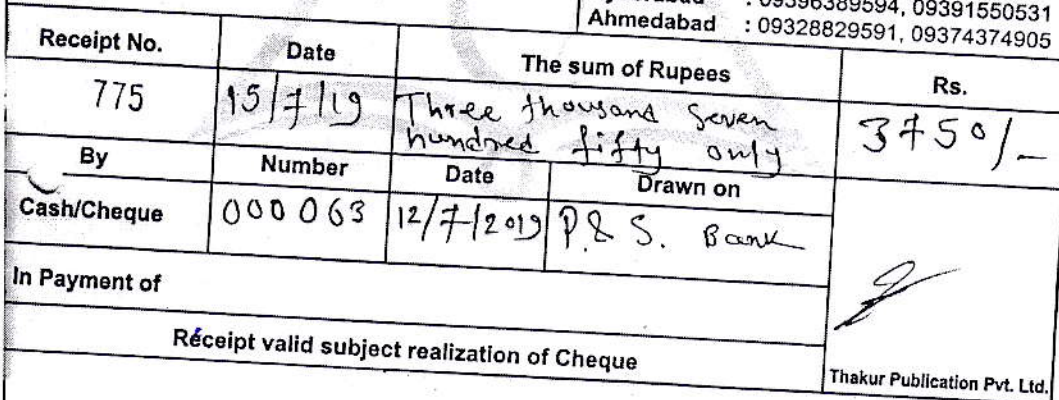 : 09396389594, 09391550531
Ahmedabad : 09328829591, 09374374905
Receipt No. Date The sum of Rupees Rs.
775 15/7/19 Three thousand Seven
hundred fifty only 3750/-
By Number Date Drawn on
Cash/Cheque 000063 12/7/2019 P.& S. Bank
In Payment of
Receipt valid subject realization of Cheque
Thakur Publication Pvt. Ltd.